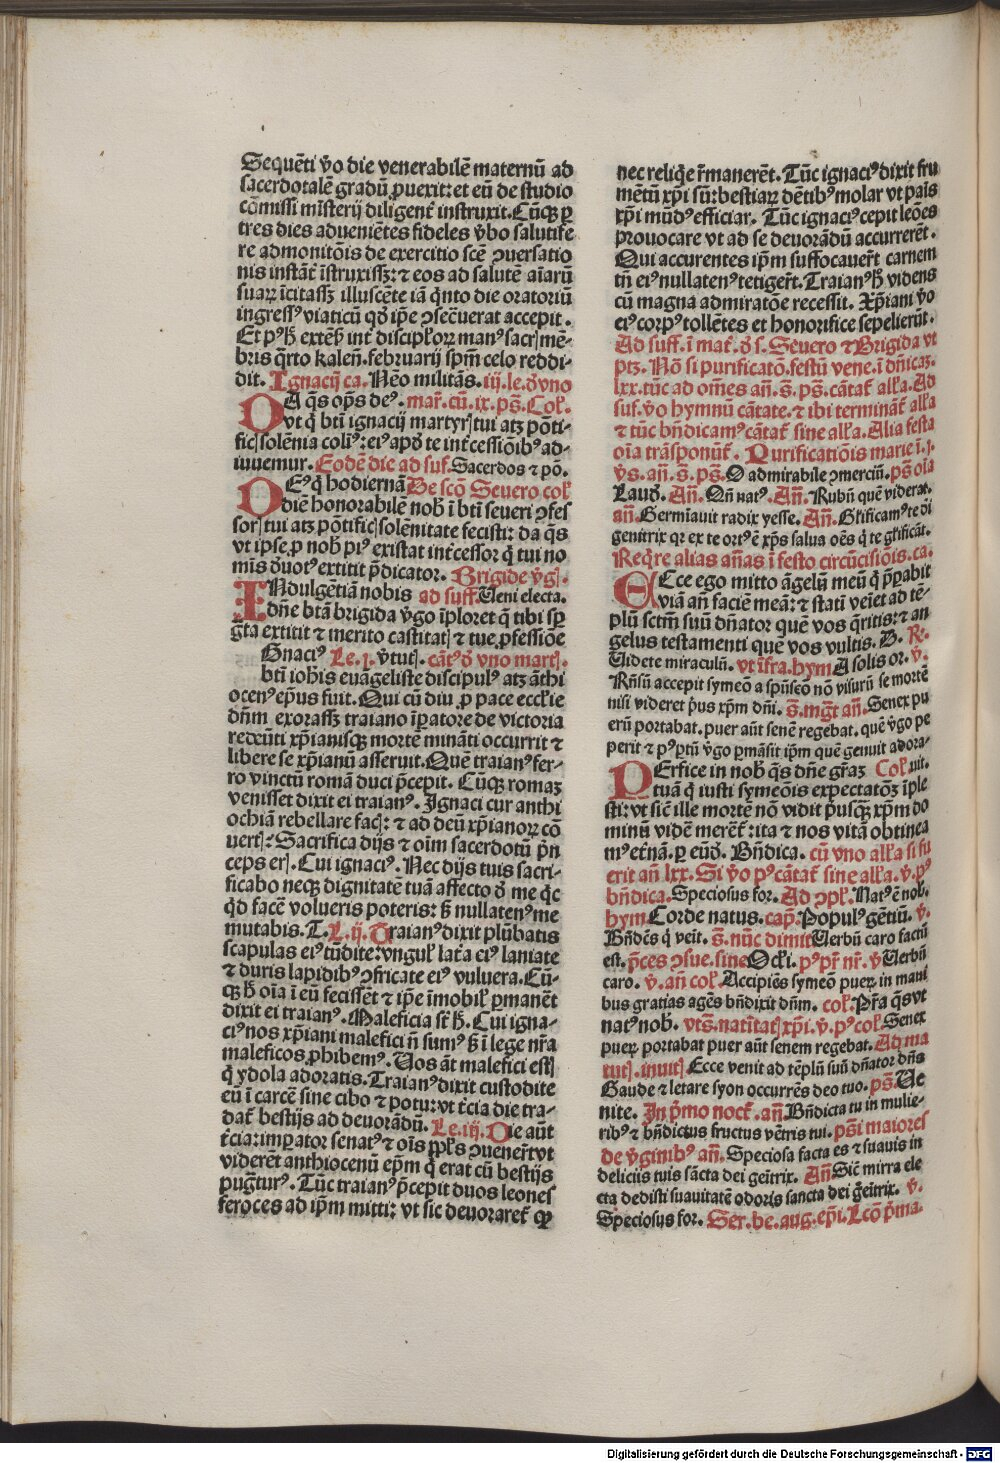 Sequēti v̄o die venerabilē maternū ad
sacerdotalē gradū ꝓuexit: et eū de studio
cōmissi misterij diligent᷑ instruxit. Cūqꝫ ꝑ
tres dies adueniētes fideles v̄bo salutife
re admonitōis de exercitio scē ꝯuersatio
nis instāt᷑ īstruxissꝫ: ⁊ eos ad salutē aīarū
suaꝝ īcitassꝫ illuscēte iā q̄nto die oratoriū
ingressꝰ viaticū qd̓ ip̄e ꝯsēcuerat accepit.
Et pꝰ hͦ extēsꝭ int᷑ discipl̓oꝝ manꝰ sacrꝭ mē-
bris q̄rto kalen̄. februarij sp̄m celo reddi-
dit. Ignacij ca. Nēo militās. iij. le. d̓ vno
DA q̄s op̄s deꝰ. mar᷑. cū. ix. pꝭ. Col̓.
vt q̄ bt̄i ignacij martyrꝭ tui atꝫ pōti-
ficꝭ solēnia colīꝰ: eiꝰ apd̓ te int᷑cessiōibꝰ ad-
iuuemur. Eodē die ad suf. Sacerdos ⁊ pō.
DEꝰ q̄ hodiernā De scō Seuero col̓
diē honorabilē nob̓ ī bt̄i seueri ꝯfes
sorꝭ tui atꝫ pōtificꝭ solēnitate fecisti: da q̄s
vt ip̄se ꝓ nob̓ piꝰ existat int᷑cessor q̄ tui no
mīs d̓uotꝰ extitit p̄dicator. Brigide v̄gꝭ.
INdulgētiā nobis ad suff. Ueni electa.
dn̄e btā brigida v̄go īploret q̄ tibi sꝑ
g̊ta extitit ⁊ merito castitatꝭ ⁊ tue ꝓfessiōe
Gnaciꝰ Le. j. v̓tutꝭ. cāt᷑ d̓ vno martꝭ.
bt̄i ioh̄is euāgeliste discipulꝰ atꝫ āthi
ocenꝰ ep̄us fuit. Qui cū diu ꝓ pace eccl̓ie
dn̄m exorassꝫ traiano īꝑatore de victoria
redeūti xp̄ianisqꝫ mortē mināti occurrit ⁊
libere se xp̄ianū asseruit. Quē traianꝰ fer-
ro vinctū romā duci p̄cepit. Cūqꝫ romaꝫ
venisset dixit ei traianꝰ. Ignaci cur anthi
ochiā rebellare facꝭ: ⁊ ad deū xp̄ianoꝝ cō
uertꝭ: Sacrifica dijs ⁊ oīm sacerdotū p̄n
ceps erꝭ. Cui ignaciꝰ. Nec dijs tuis sacri-
ficabo neqꝫ dignitatē tuā affecto d̓ me q̄c
q̄d facē volueris poteris: sꝫ nullatenꝰ me
mutabis. T. L. ij. Traianꝰ dixit plūbatis
scapulas eiꝰ tūdite: vngul̓ lat᷑a eiꝰ laniate
⁊ duris lapidibꝰ ꝯfricate eiꝰ vuluera. Cū-
qꝫ hͦ oīa ī eū fecissēt ⁊ ip̄e īmobil̓ ꝑmanēt
dixit ei traianꝰ. Maleficia st̄ hͦ. Cui igna-
ciꝰ nos xp̄iani malefici n̄ sumꝰ sꝫ ī lege nr̄a
maleficos ꝓhibemꝰ. Uos āt malefici estꝭ
q̄ ydola adoratis. Traianꝰ dixit custodite
eū ī carcē sine cibo ⁊ potu: vt t᷑cia die tra-
dat᷑ bestijs ad deuorādū. Le. iij. Die aūt
t᷑cia: imꝑator senatꝰ ⁊ oīs ppl̓s ꝯuener̄t vt
viderēt anthiocenū ep̄m q̄ erat cū bestijs
pugt᷑urꝰ. Tūc traianꝰ p̄cepit duos leones
feroces ad ip̄m mitti: vt sic deuoraret᷑ qꝫ
nec reliq̄e r̄manerēt. Tūc ignaciꝰ dixit fru
mētū xp̄i sū: bestiaꝝ dētibꝰ molar vt paīs
xp̄i mūdꝰ efficiar. Tūc ignaciꝰ cepit leōes
prouocare vt ad se deuorādū accurrerēt.
Qui accurentes ip̄m suffocauer̄t carnem
tn̄ eiꝰ nullatenꝰ tetiger̄t. Traianꝰ hͦ videns
cū magna admiratōe recessit. Xp̄iani v̄o
eiꝰ corpꝰ tollētes et honorifice sepelierūt.
Ad suff. ī mat᷑. d̓ s. Seuero ⁊ Brigida vt
ptꝫ. Nō si purificatō. festū vene. ī dn̄icaꝫ.
lxx. tūc ad om̄es an̄. s̄. pꝭ. cātat᷑ all̓a. Ad
suf. v̄o hymnū cātate. ⁊ ibi terminat᷑ all̓a
⁊ tūc bn̄dicamꝰ cātat᷑ sine all̓a. Alia festa
oīa trāsponūt᷑. Purificatiōis marie ī. j.
v̄s. an̄. s̄. pꝭ. O admirabile ꝯmerciū. pꝭ oīa
Laud̓. An̄. Qn̄ natꝰ. An̄. Rubū quē viderat.
an̄. Germīauit radix yesse. An̄. Gl̓ificamꝰ te d̓i
genitrix qꝛ ex te ortꝰ ē xp̄s salua oēs q̄ te gl̓ificāt.
Req̄re alias an̄as ī festo circūcisiōis. ca.
ECce ego mitto āgelū meū q̄ p̄ꝑabit
viā an̄ faciē meā: ⁊ statī veīet ad tē-
plū sctm̄ suū dn̄ator quē vos q̄ritis: ⁊ an
gelus testamenti quē vos vultis. B. Re.
Uidete miraculū. vt īfra. hym A solis or. v̄.
Rn̄sū accepit symeō a spū sctō nō visurū se mortē
nisi videret p̄us xp̄m dn̄i. s̄. mg̅t an̄. Senex pu
erū portabat. puer aūt senē regebat. quē v̄go pe
perit ⁊ pꝰ ꝑtū v̄go ꝑmāsit ip̄m quē genuit adora-
PErfice in nob̓ q̄s dn̄e gr̄aꝫ Col̓. uit.
tuā q̄ iusti symeōis expectatōꝫ īple
sti: vt sic̄ ille mortē nō vidit p̄usqꝫ xp̄m do
minū vidē meret᷑: ita ⁊ nos vitā obtinea
mꝰ et᷑nā. ꝑ eūd̓. Bn̄dica. cū vno all̓a si fu
erit an̄ lxx. Si v̄o pꝰ cātat᷑ sine all̓a. v̄. pꝰ
bn̄dica. Speciosus for. Ad ꝯpl̓. Natꝰ ē nob̓.
hym Corde natus. cap̄. Populꝰ gētiū. v̄.
Bn̄dcs q̄ veīt. s̄. nūc dimit Uerbū caro factū
est. p̄ces ꝯsue. sine Ocl̓i. pꝰ pr̄ nr̄. v̄ Uerbū
caro. v̄. an̄ col̓. Accipiēs symeō pueꝝ in mani
bus gratias agēs bn̄dixit dn̄m. col̓. Pr̄a q̄s vt
natꝰ nob̓. vts̄. natītatꝭ xp̄i. v̄. pꝰ col̓ Senex
pueꝝ portabat puer aūt senem regebat. Ad ma
tutꝭ. inuitꝭ Ecce venit ad tēplū suū dn̄ator dn̄s
Gaude ⁊ letare syon occurrēs deo tuo. pꝭ. Ue
nite. In p̄mo noct᷑. an̄. Bn̄dicta tu in mulie-
ribꝰ ⁊ bn̄dictus fructus vētris tui. pꝭi maiores
de v̄ginibꝰ an̄. Speciosa facta es ⁊ suauis in
deliciis tuis sācta dei geītrix. An̄ Sic̄ mirra ele
cta dedisti suauitatē odoris sancta dei geītrix. v̄.
Speciosus for. Ser. be. aug. ep̄i. Lcō p̄ma.
Digitalisierung gefördert durch die Deutsche Forschungsgemeinschaft - DFG